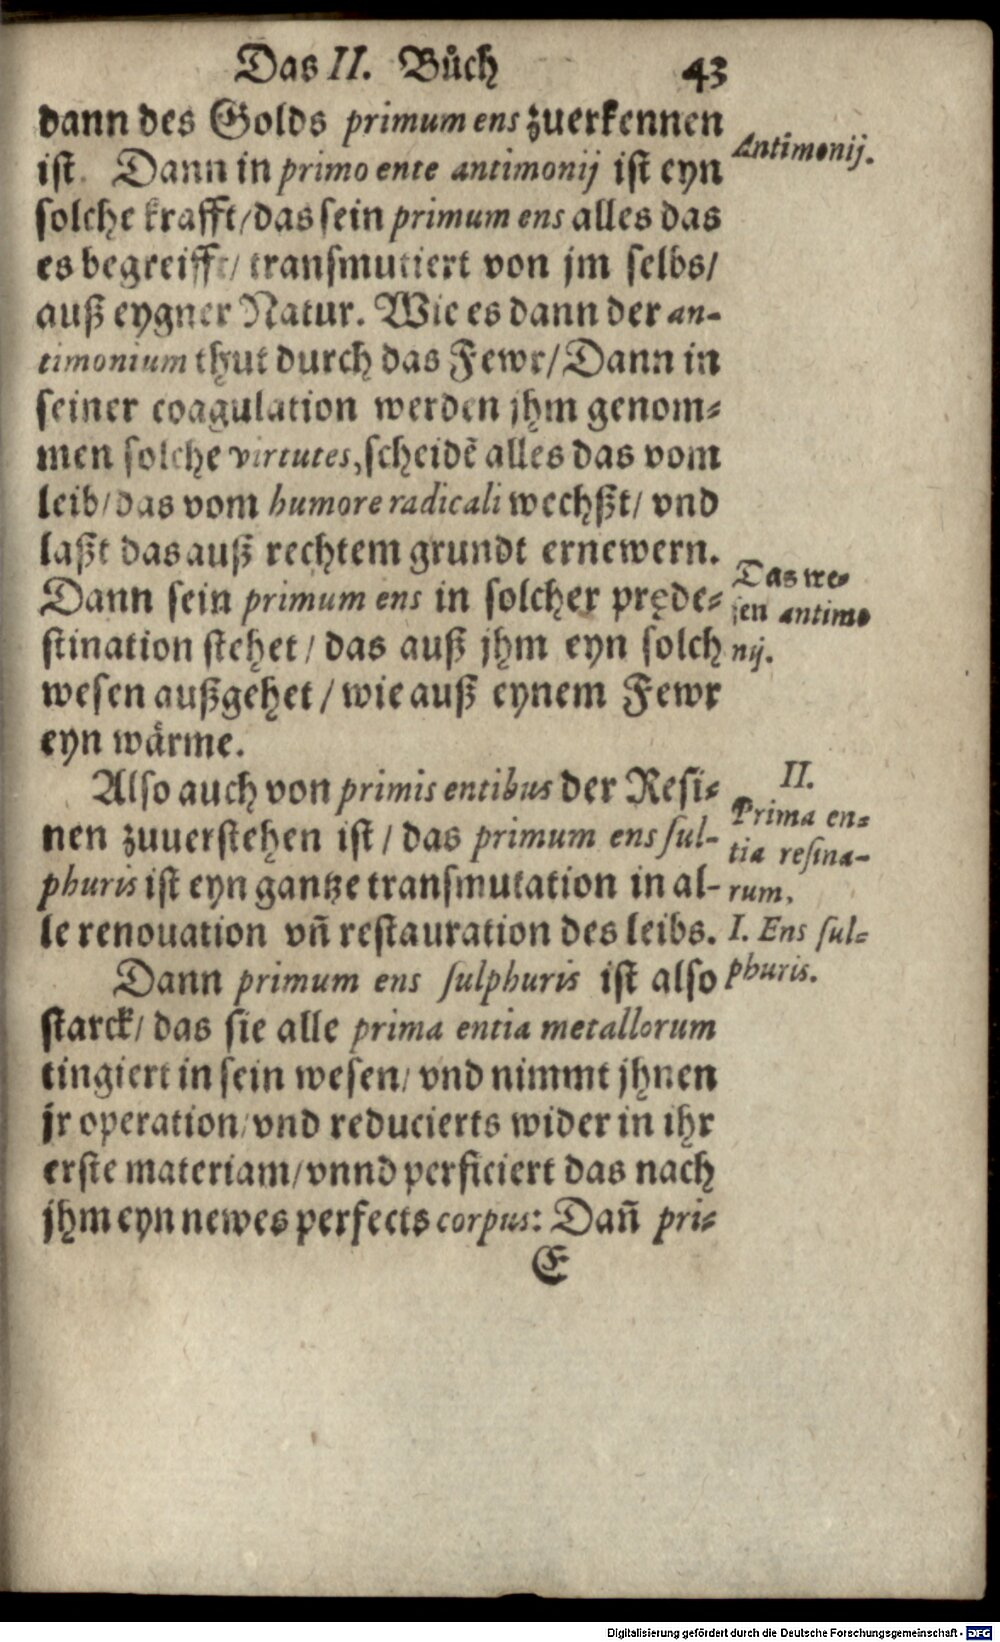 Das II. Bůch 43
dann des Golds primum ens zuerkennen
ist. Dann in primo ente antimonij ist eyn
solche krafft/das sein primum ens alles das
es begreifft/ transmutiert von jm selbs/
auß eygner Natur. Wie es dann der an-
timonium thut durch das Fewr/Dann in
seiner coagulation werden jhm genom-
men solche virtutes, scheidẽ alles das vom
leib/das vom humore radicali wechßt/ vnd
laßt das auß rechtem grundt ernewern.
Dann sein primum ens in solcher pręde-
stination stehet/ das auß jhm eyn solch
wesen außgehet/ wie auß eynem Fewr
eyn wärme.
Also auch von primis entibus der Resi-
nen zuuerstehen ist/ das primum ens sul-
phuris ist eyn gantze transmutation in al-
le renouation vñ restauration des leibs.
Dann primum ens sulphuris ist also
starck/ das sie alle prima entia metallorum
tingiert in sein wesen/ vnd nimmt jhnen
jr operation/vnd reducierts wider in ihr
erste materiam/vnnd perficiert das nach
jhm eyn newes perfects corpus: Dañ pri-
E
Antimonij.
Das we-
sen antimo
nij.
II.
Prima en-
tia resina-
rum.
I. Ens sul-
phuris.
Digitalisierung gefördert durch die Deutsche Forschungsgemeinschaft - DFG